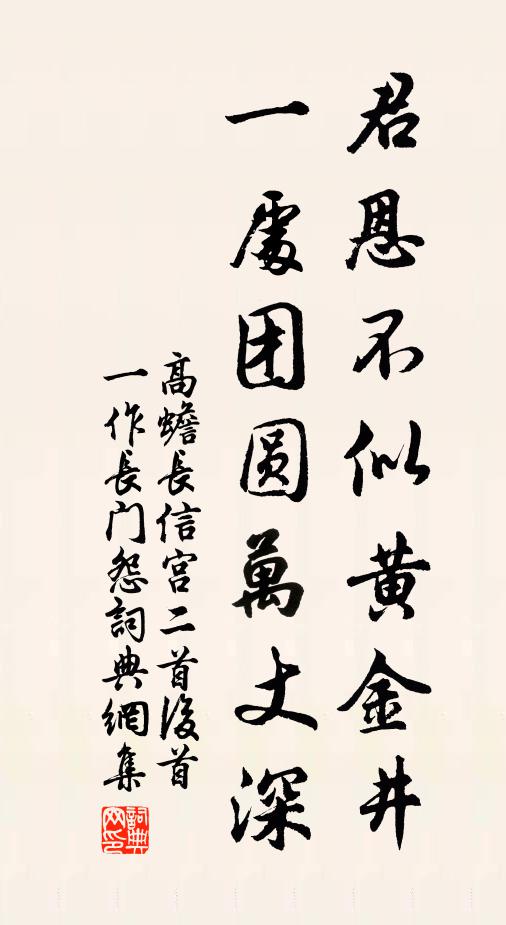 君恩不似黃金井
一處团圆萬丈深
高蟾長信宮二首後首
一作長門怨詞典網集
詞典
网印